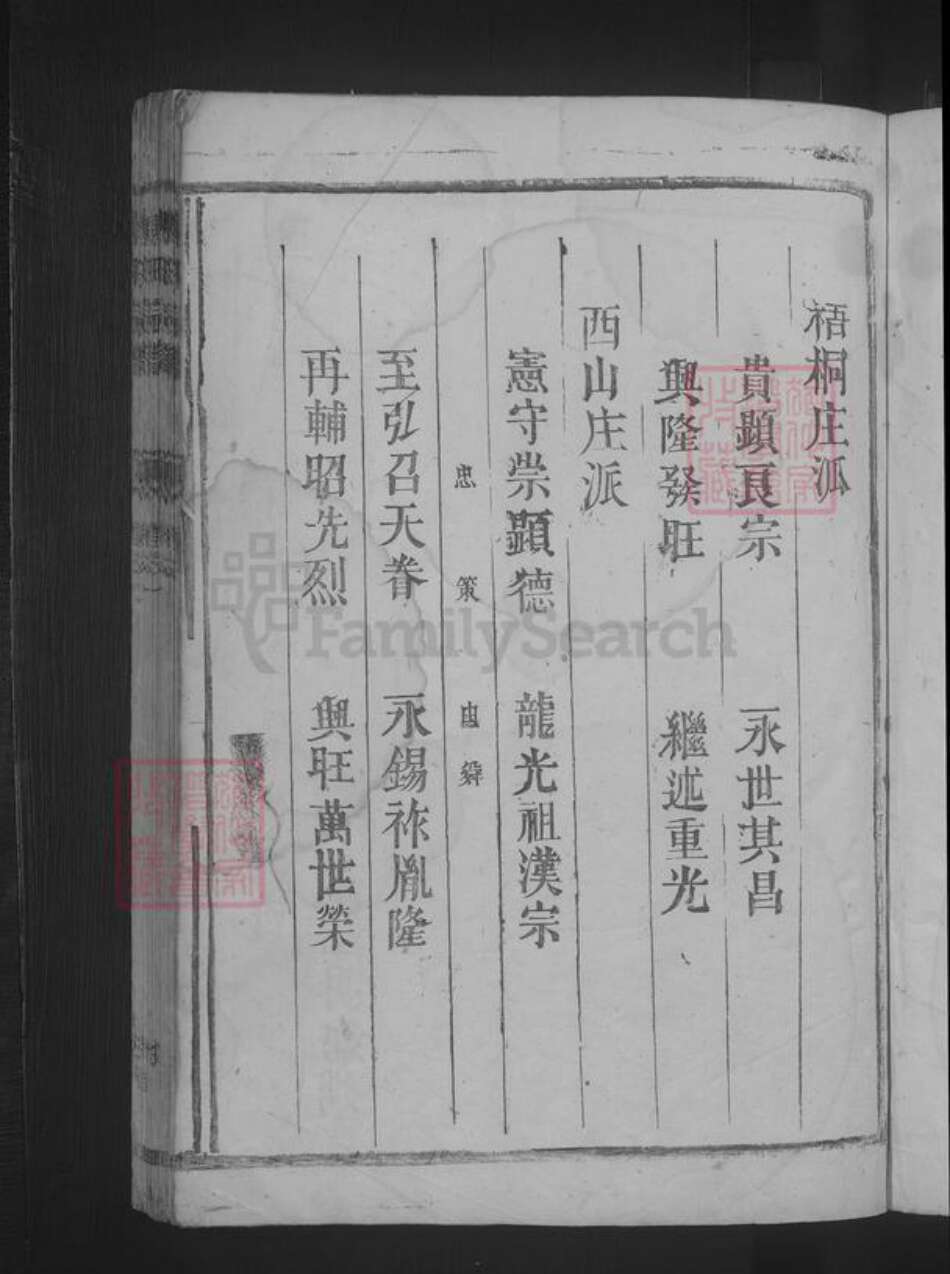 梧桐庄派
貴顯良宗 永世其昌
興隆發旺 繼述重光
西山庄派
憲守崇顯德 龍光祖漢宗
忠 策
至弘召天眷 永錫祚胤隆
再輔昭先烈 興旺萬世榮
FamilySearch